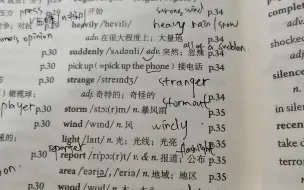 压力 press 开始 strong wind
heavily /ˈhevɪli/ heavy rain / snow
adv. 在很大程度上; 大量地 p.34
opinion all of a sudden
suddenly /ˈsʌdənli/ adv. 突然; 忽然 p.34
pick up (=pick up the phone) 接电话 p.34
p.30 strange /streɪndʒ/ stranger
adj. 奇特的; 奇怪的 p.34
player storm /stɔː(r)m/ n. 暴风雨
p.30 wind /wɪnd/ n. 风 windy p.34
p.30 light /laɪt/ n. 光; 光线; 光亮 p.34
reporter flashlight
p.30 report /rɪˈpɔː(r)t/ v. & n. 报道; 公布 p.35
p.30 area /ˈeəriə/, /ˈeriə/ n. 地域; 地区 p.35
wood /wʊd/ n. 木
in silen
silence
recent
take d
terror